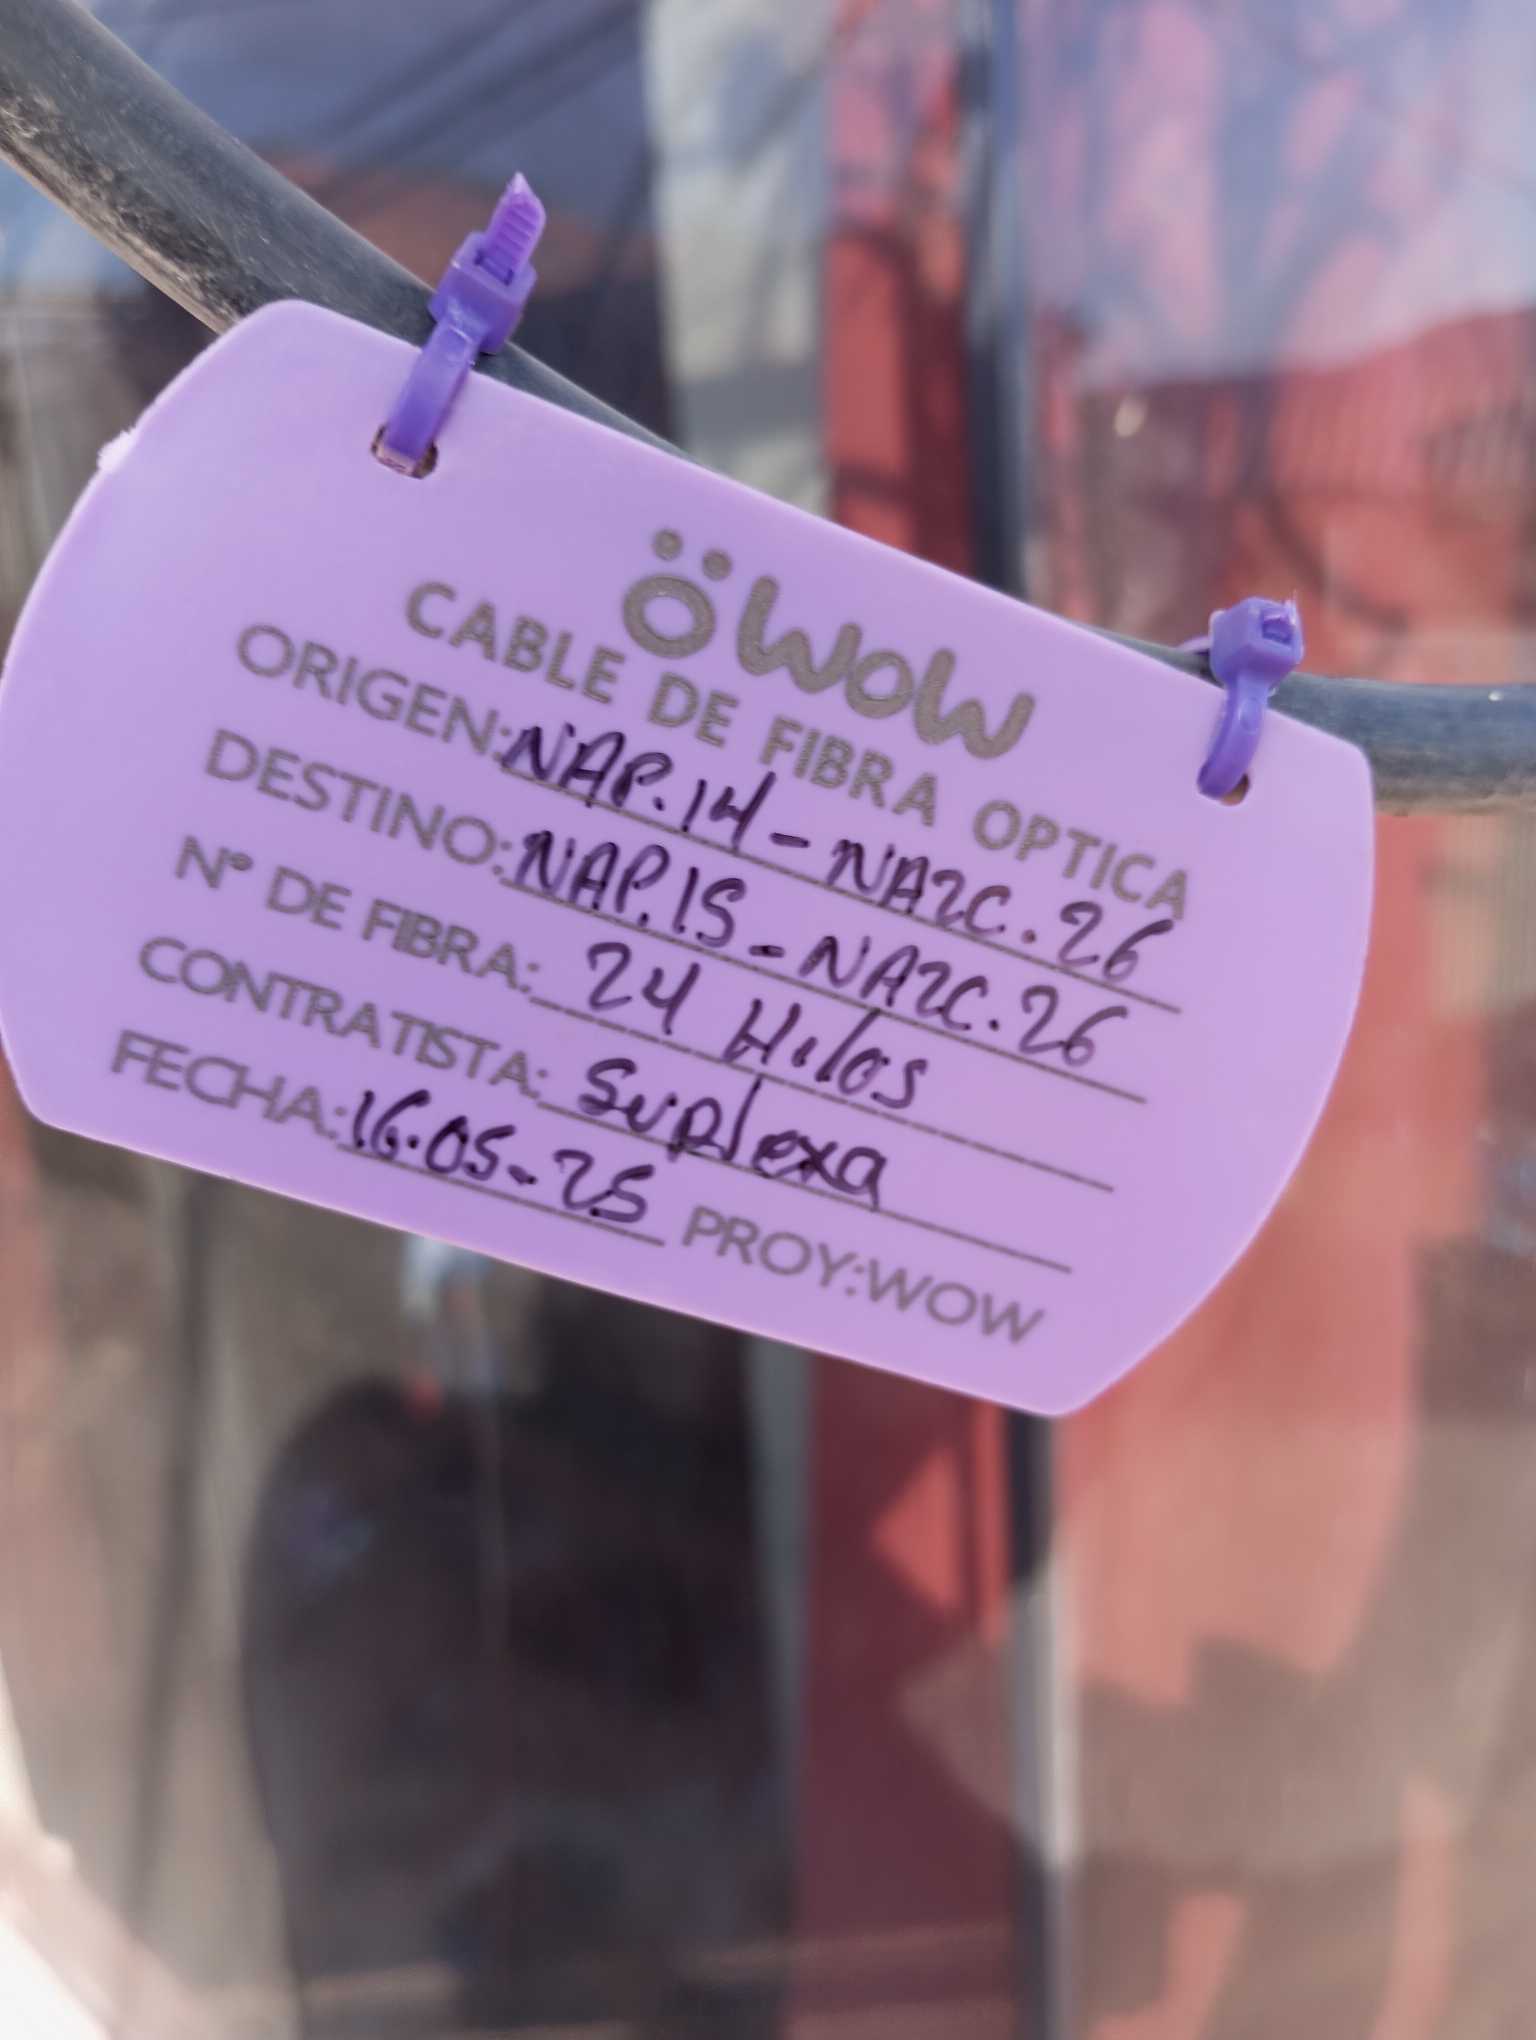 wow
CABLE DE FIBRA OPTICA
ORIGEN: NAP.14 - NAZC.26
DESTINO: NAP.15 - NAZC.26
N° DE FIBRA: 24 Hilos
CONTRATISTA: Suplexa
FECHA: 16.05-25 PROY:WOW